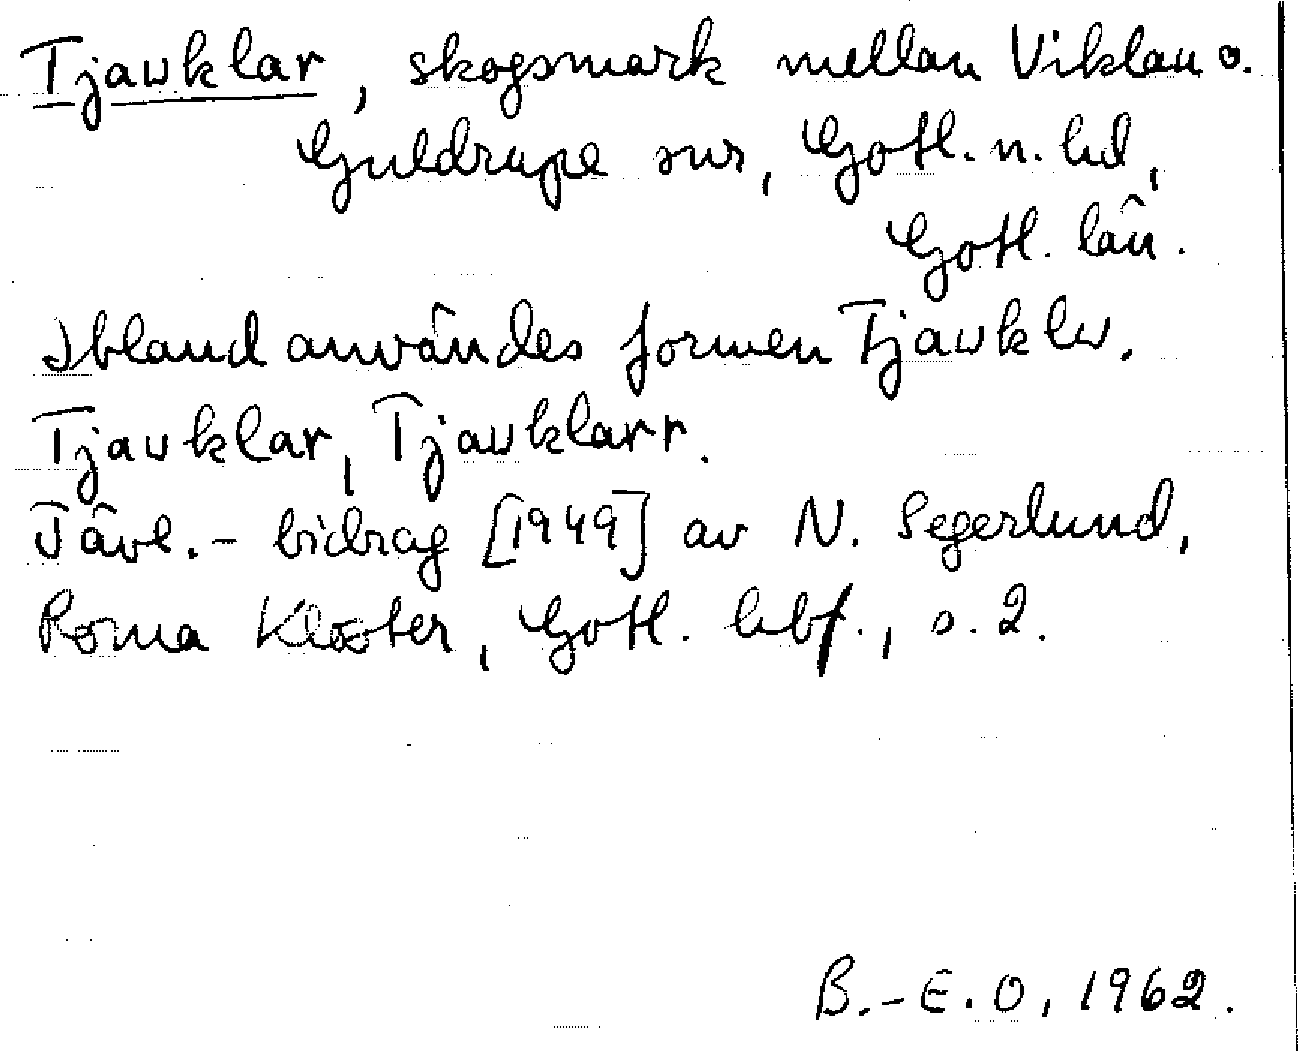 Tjauklar, skogsmark mellan Viklau o.
Guldrupe snr, Gotl. n. hd,
Gotl. län.
Ibland användes formen Tjaukle.
Tjauklar, Tjauklarr.
Tävl.- bidrag [1949] av N. Segerlund,
Roma Kloster, Gotl. hbf., s. 2.
B.-E. O, 1962.